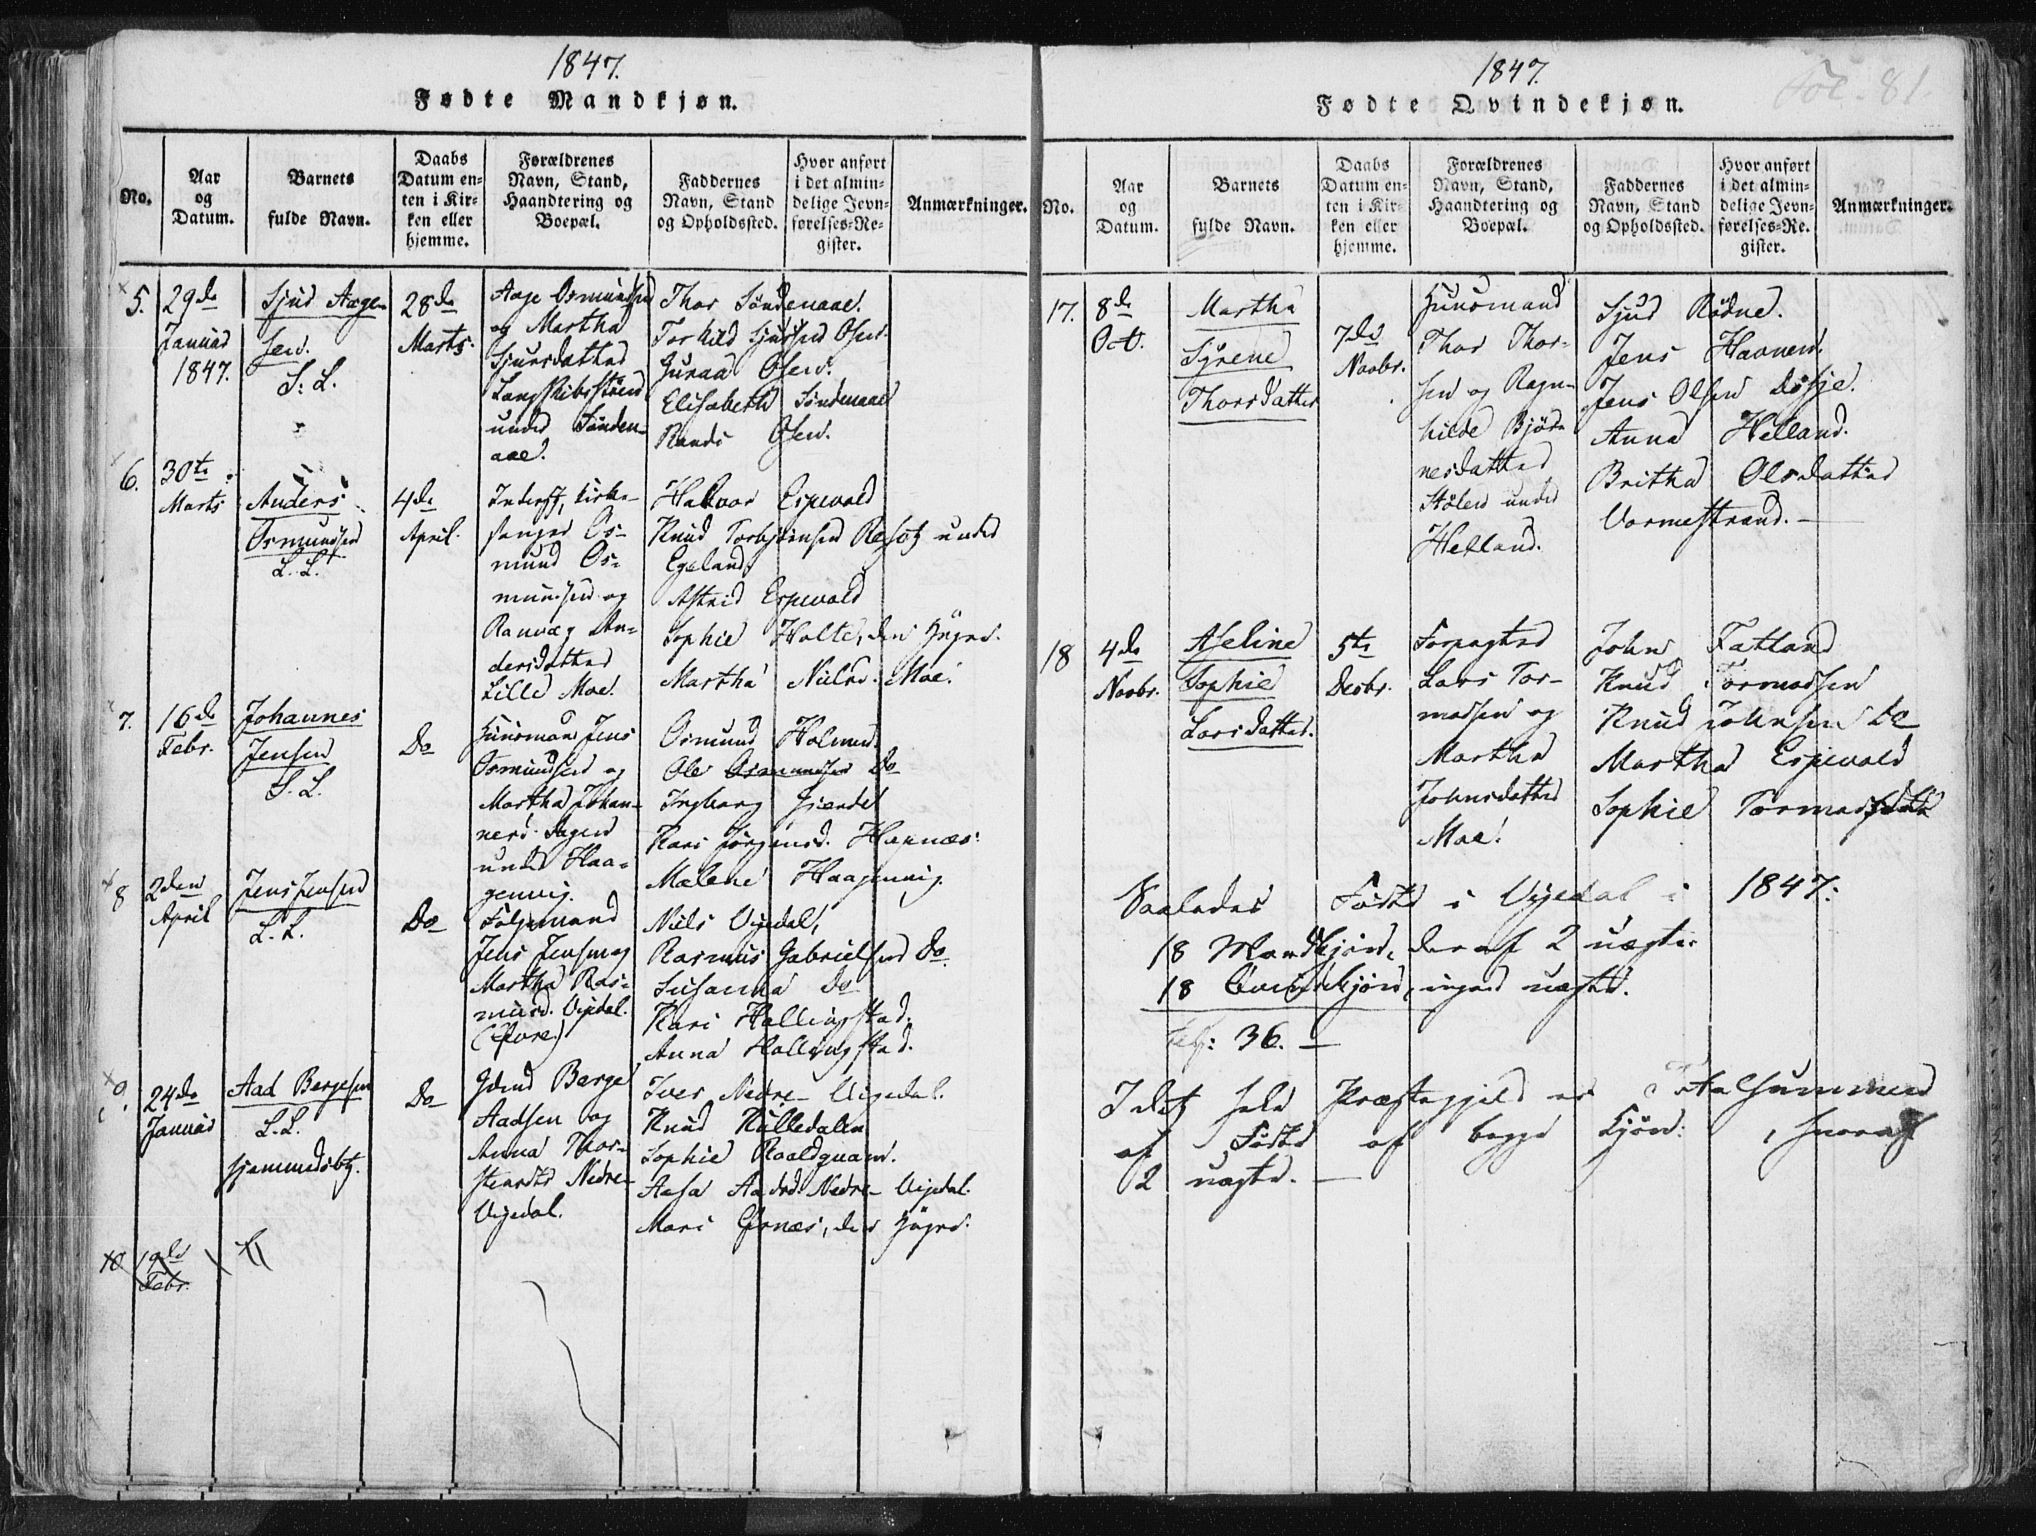 1847.
Fødte Mandkjøn.
No.
Aar
og
Datum.
Barnets
fulde Navn.
Daabs
Datum en-
ten i Kir-
ken eller
hjemme.
Forældrenes
Navn, Stand,
Haandtering og
Boepæl.
Faddernes
Navn, Stand
og Opholdssted.
Hvor anført
i det almin-
delige Jevn-
førelses-Re-
gister.
Anmærkninger.
5.
29de
Januar
1847.
Sjur Aage-
sen.
S. L.
28de
Marts.
Aage Osmundsen
og Martha
Sjursdatter
Langskibsstøen
under Sønden-
aae.
Thor Søndenaae.
Torkild Sjursen Osen.
Guraa Osen.
Elisabeth Søndenaae
Randi Osen.
6.
30te
Marts
Anders
Osmundsen
L. L.
4de
April.
Interst, Kirke-
sanger Os-
mund Os-
mundsen og
Ranveg An-
dersdatter
Lille Moe.
Halvor Espevold
Knud Torbjørnsen under
Egeland.
Astrid Espevold
Sophie Holte, den Yngre.
Martha Nielsd. Moe.
7.
16de
Febr.
Johannes
Jensen
S. L.
Do
Huusmand Jens
Osmundsen og
Martha Johan-
under Haa-
genvig.
Osmund Holmen.
Ole Osmundsen Do
Ingborg
Kari Jørgensd. Hapnæs.
Malene Haagenvig.
8
2den
April
Jens Jensen
L. L.
Do
Jens Jensen og
Martha Ras-
musd. Vigedal.
Niels Vigedal,
Rasmus Gabrielsen Do.
Susanna Do
Kari Hallingstad.
Anna Hallingstad.
9.
24de
Januar
Aad Bergesen
L. L.
hjemmedøbt.
Do
Berge
Aadsen og
Anna Thor-
stensdtr Nedre-
Vigedal.
Iver Nedre- Vigedal.
Knud Kulledalen
Sophie Roaldquam.
Aasa Aadsd. Nedre- Vigedal.
Mari Ørnæs, den Yngre.
10
19de
Febr.
1847.
Fol. 81.
Fødte Qvindekjøn.
No.
Aar
og
Datum.
Barnets
fulde Navn.
Daabs
Datum en-
ten i Kir-
ken eller
hjemme.
Forældrenes
Navn, Stand,
Haandtering og
Boepæl.
Faddernes
Navn, Stand
og Opholdssted.
Hvor anført
i det almin-
delige Jevn-
førelses-Re-
gister.
Anmærkninger.
17.
8de
Oct.
Martha
Syrene
Thorsdatter
7de
Novbr.
Huusmand
Thor Thor-
sen og Ragn-
hilde Bjør-
nesdatter
Stølen under
Helland.
Sjur Rødne.
Jens Havnen.
Jens Olsen
Anna Helland.
Britha Olsdatter
Vormestrand.
18
4de
Novbr.
Aseline
Sophie
Larsdatter.
5te
Decbr.
Forpagter
Lars Tor-
madsen og
Martha
Johnsdatter
Moe.
John Fatland
Knud Tormodsen
Knud Johnsen Do
Martha Espevold
Sophie
Saaledes Fødte i Vigedal i 1847:
18 Mandkjøn, deraf 2 uægte.
18 Qvindekjøn, ingen uægte.
36.
I det hele Præstegjeld er Totalsummen
af Fødte af begge Kjøn:
2 uægte.